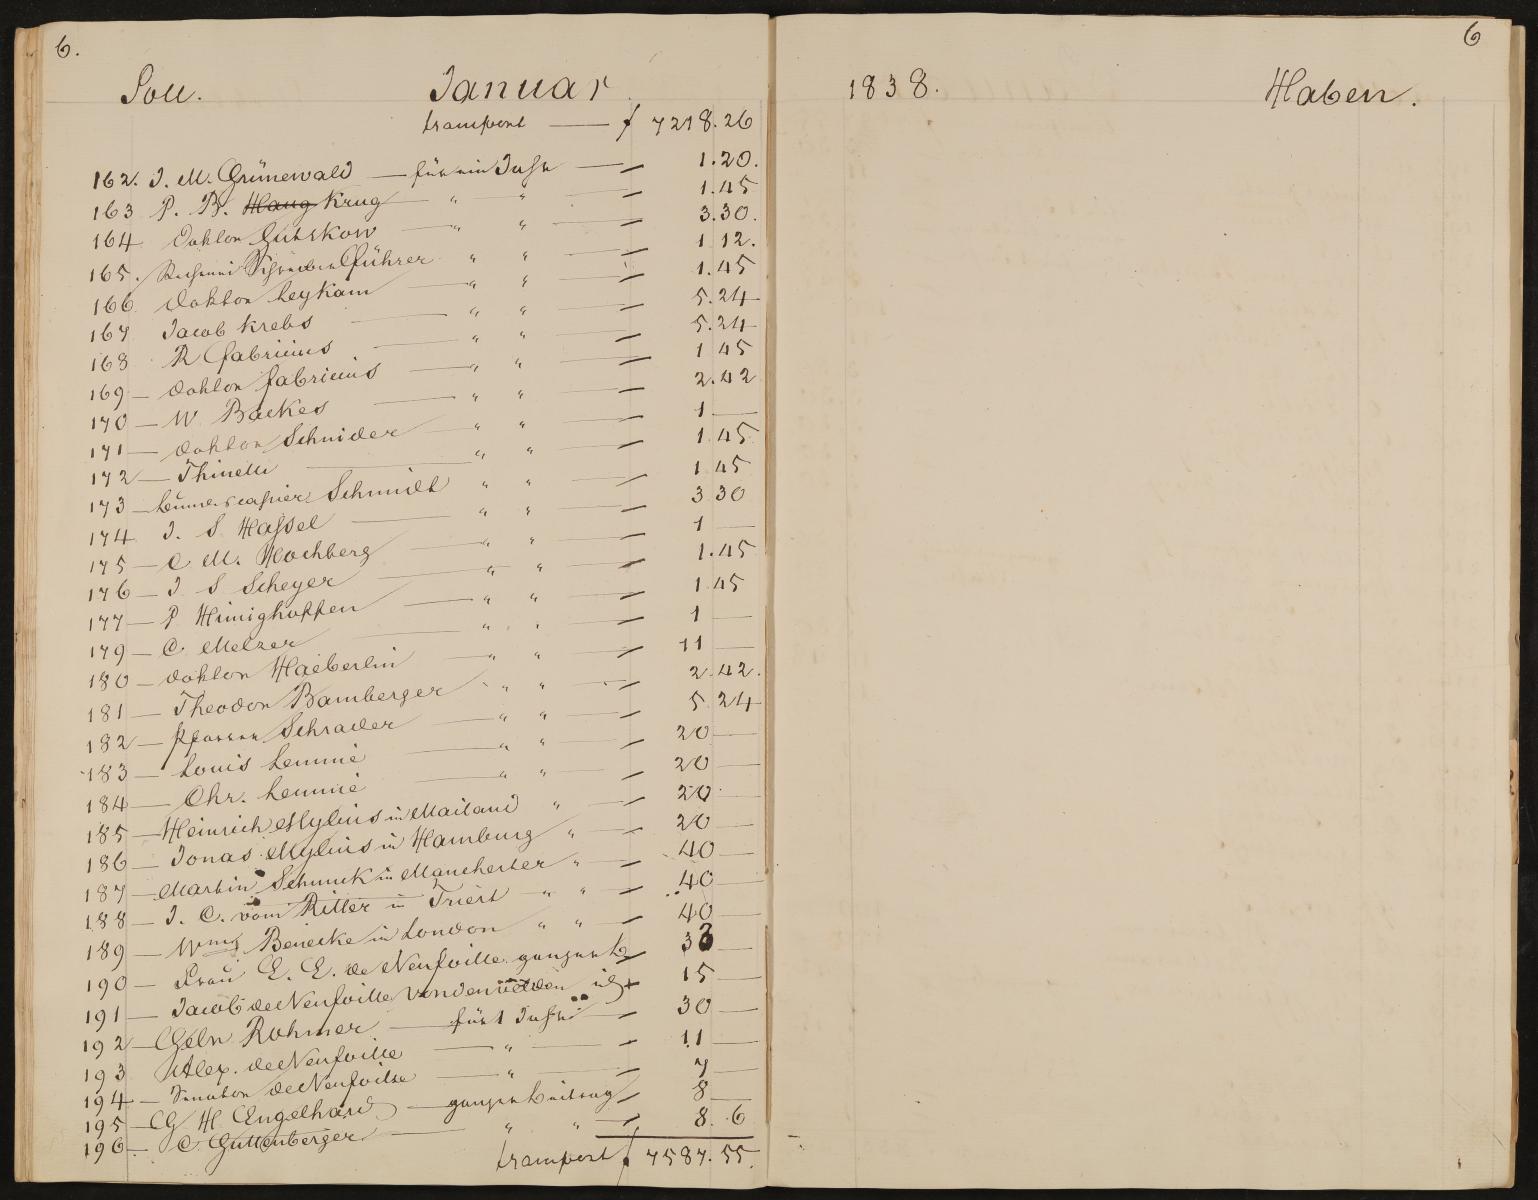 6.
Soll. Januar
transport — f 7218.26
162. J. M. Grünewald — für ein Jahr — 1.20.
163 P. B. Haug Krug — " " — 1.45
164 Doktor Gutskow — " " — 3.30.
165. Führer " " — 1 12.
166 Doktor Leykam — " " — 1.45
167 Jacob Krebs — " " — 5.24
168 R Fabricius — " " — 5.24
169 — Doktor Fabricius — " " — 1 45
170 — W. Backes — " " — 2.42
171 — Doktor Schnider — " " — 1 —
172 — Thinelli — " " — 1.45
173 — Schmidt " " — 1 45
174 J. S. Hassel — " " — 3 30
175 — C. M. Hochberg — " " — 1 —
176 — J S Scheyer — " " — 1.45
177 — P Himighoffen — " " — 1 45
179 — C. Melzer — " " — 1 —
180 — Doktor Haeberlin — " " — 11 —
181 — Theodor Bamberger " " — 2.42.
182 — Pfarrer Schrader — " " — 5 24
183 — Louis Lemmé — " " — 20 —
184 — Chr. Lemmé — " " — 20 —
185 — Heinrich Mylius in Mailand " — 20 —
186 — Jonas Mylius in Hamburg " — 20 —
187 — Martin Schunck in Manchester " — 40 —
188 — J. C. vom Ritter in Triest " " — 40 —
189 — Wm. Benecke in London " " — 40 —
190 — Frau E. E. de Neufville ganzer 33 —
191 — Jacob de Neufville 15 —
192 — Rohmer — für 1 Jahr — 30 —
193 Alex. de Neufville — " — 11 —
194 — Senator de Neufville — " — 7 —
195 — G H. Engelhard — ganzer Beitrag — 8 —
196 — C. Guttenberger — " " — 8. 6
transport f 7587.55.
6
1838. Haben.